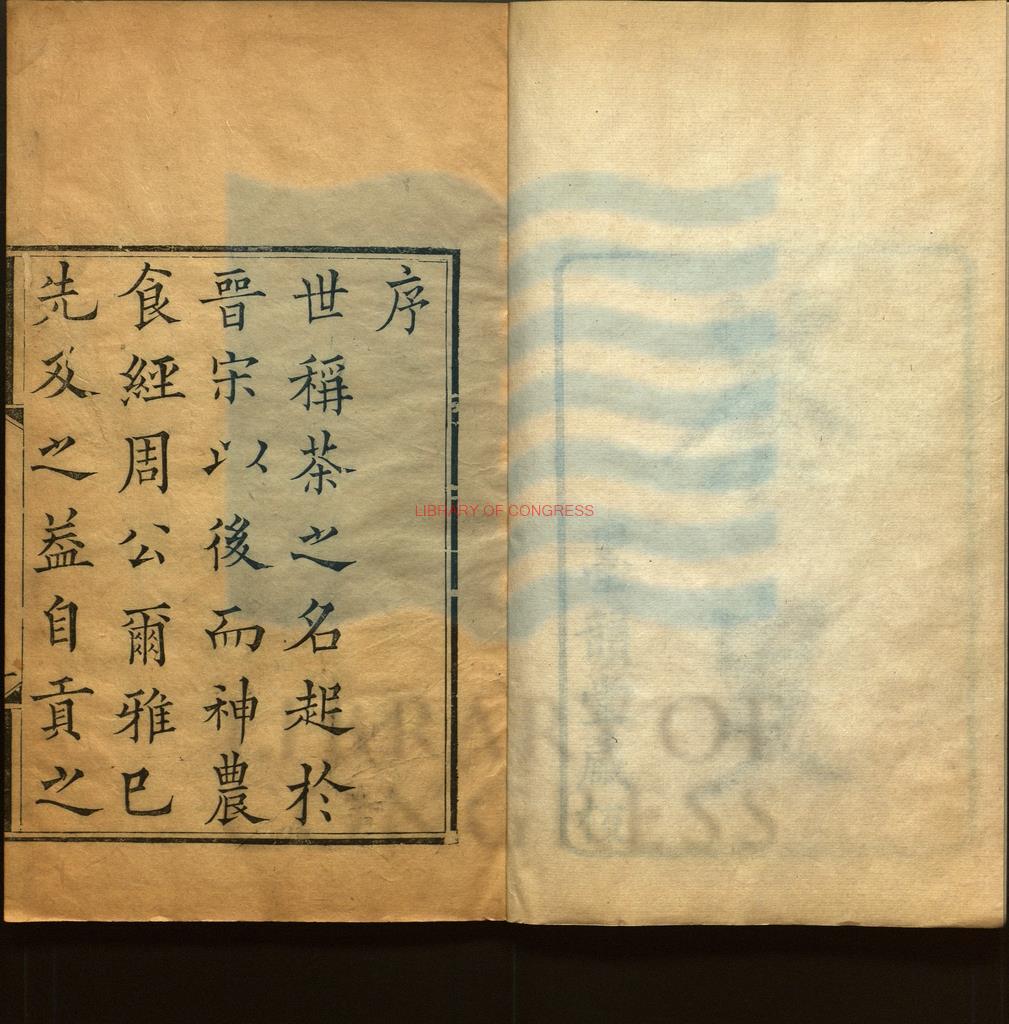 序
世稱茶之名起於
晉宋以後而神農
食經周公爾雅已
先及之益自貢之
LIBRARY OF CONGRESS